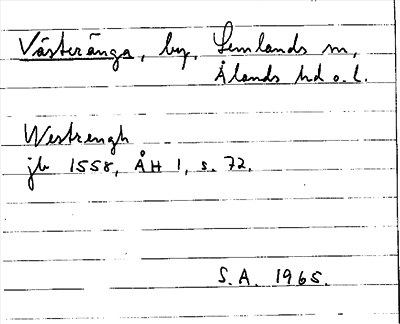 Västeränga, by, Lemlands sn,
Ålands hd o. l.
Westrengh
jb 1558, ÅH 1, s. 72.
S.A. 1965.